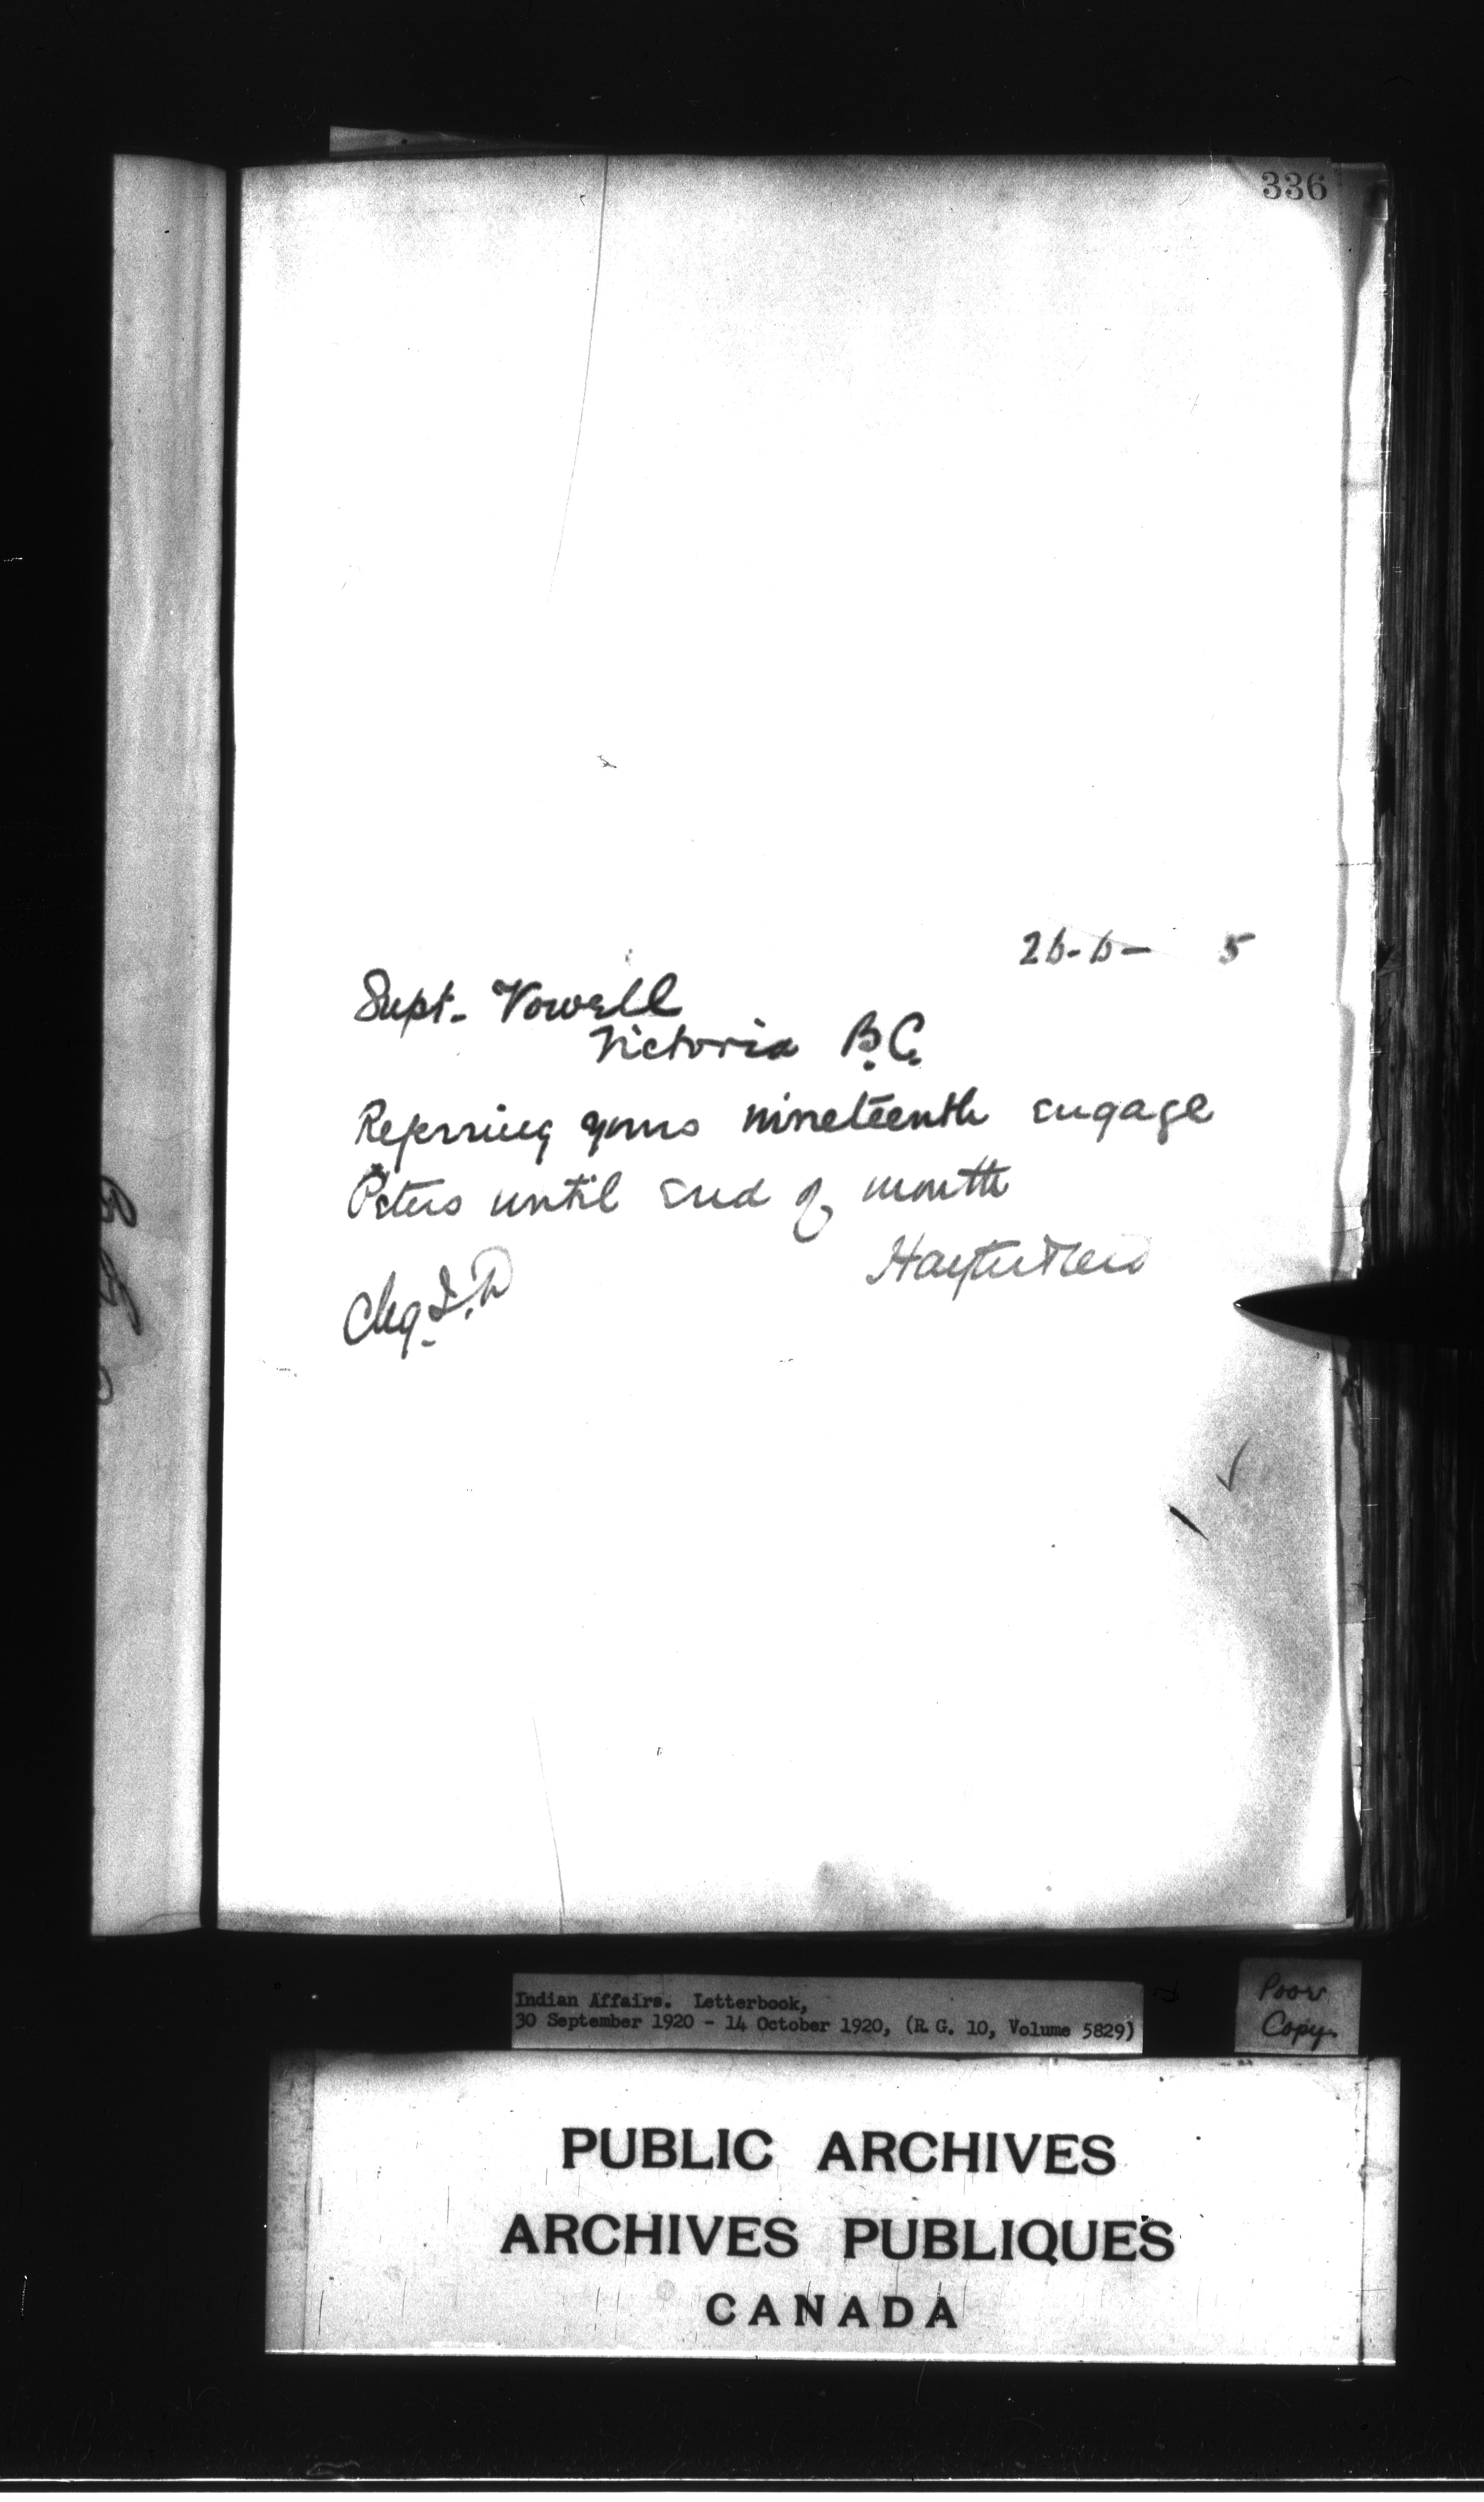 336
26-6- 5
Supt. Vowell
Victoria B.C.
Referring yours nineteenth engage
Peters until end of month
Hayter Reed
Chg. I.D
Indian Affairs. Letterbook,
30 September 1920 - 14 October 1920, (R.G. 10, Volume 5829)
Poor
Copy
PUBLIC ARCHIVES
ARCHIVES PUBLIQUES
CANADA